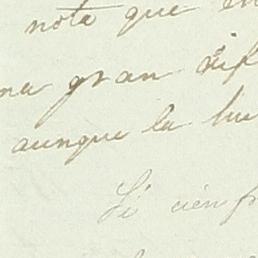 note que en
na gran dif
aunque la lu
Si cien fr